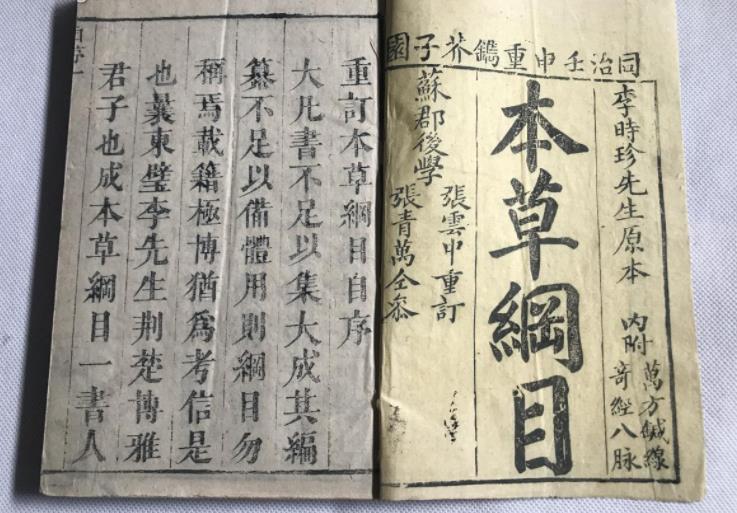 同治壬申重鐫芥子園
李時珍先生原本
內附
萬方鍼線
奇經八脉
本草綱目
蘇郡後學
張雲中重訂
張青萬仝叅
重訂本草綱目自序
大凡書不足以集大成其編
纂不足以備體用則綱目勿
稱焉載籍極博猶爲考信是
也曩東璧李先生荆楚博雅
君子也成本草綱目一書人